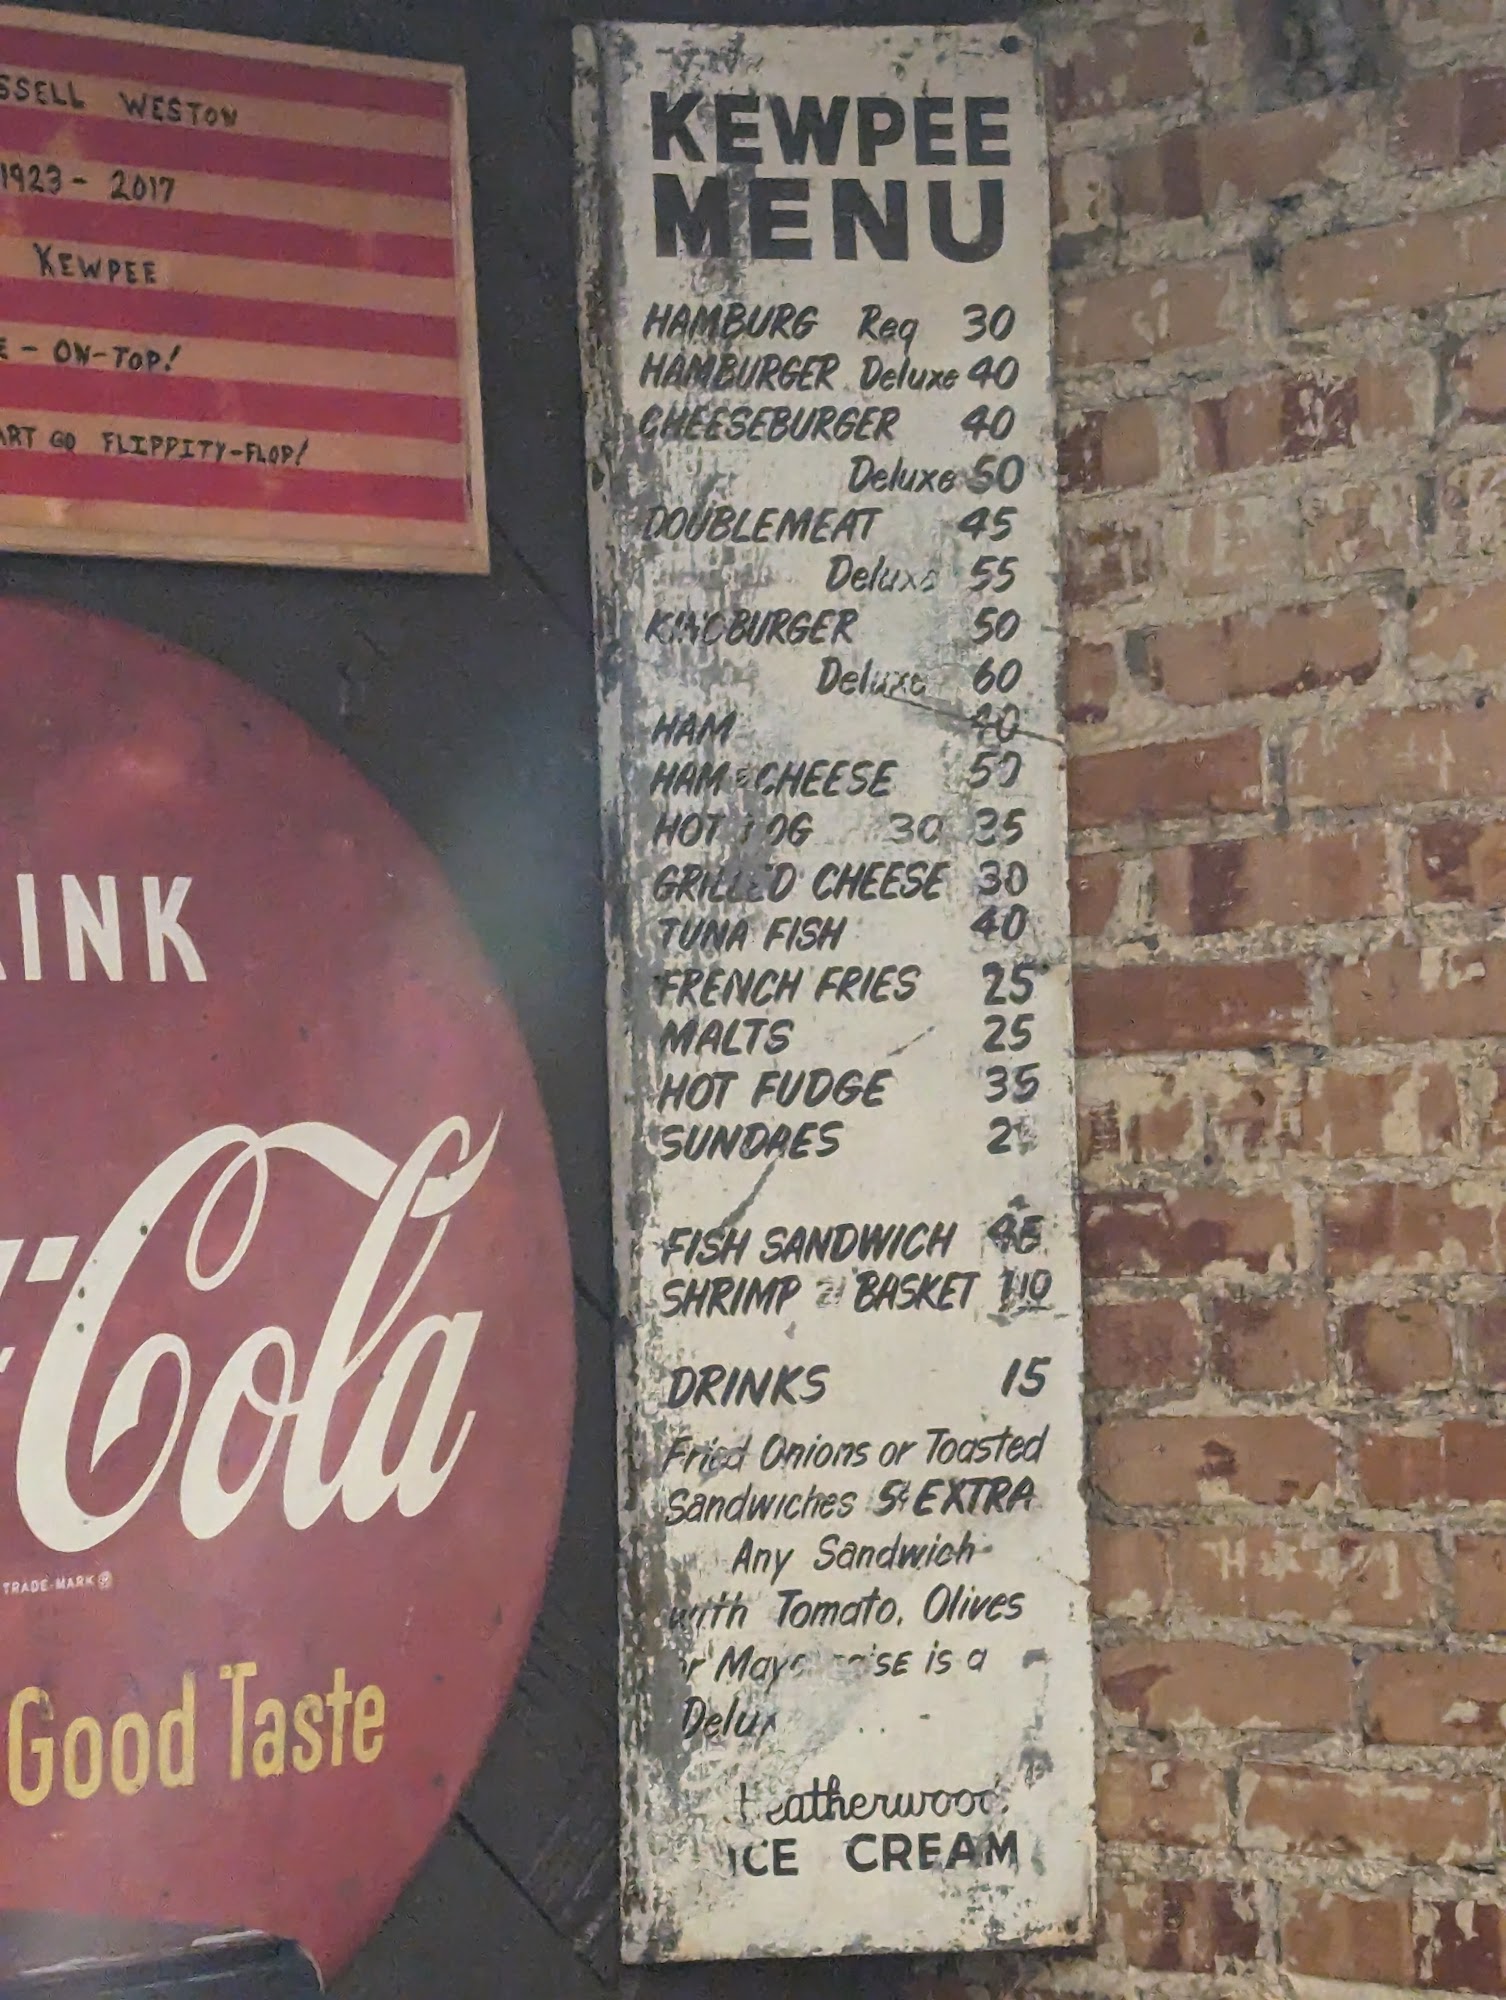 SSELL WESTON
1923 - 2017
KEWPEE
E - ON-TOP!
ART GO FLIPPITY-FLOP!
INK
Cola
TRADE-MARK ®
Good Taste
KEWPEE
MENU
HAMBURG Reg 30
HAMBURGER Deluxe 40
CHEESEBURGER 40
Deluxe 50
DOUBLEMEAT 45
Deluxe 55
KINGBURGER 50
Deluxe 60
HAM 40
HAM & CHEESE 50
HOT DOG 30 35
GRILLED CHEESE 30
TUNA FISH 40
FRENCH FRIES 25
MALTS 25
HOT FUDGE 35
SUNDAES
FISH SANDWICH 45
SHRIMP BASKET 1.10
DRINKS 15
Fried Onions or Toasted
Sandwiches 5¢ EXTRA
Any Sandwich
with Tomato, Olives
or Mayonnaise is a
Deluxe
Heatherwood
ICE CREAM